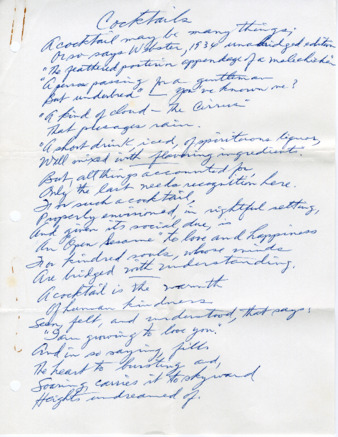 Cocktails
A cocktail may be many things;
Or so says Webster, 1934 unabridged edition
"The feathered posterior appendage of a male chicken"
"A person passing for a gentleman
But underbred" — you've known one?
"A kind of cloud - The Cirrus"
That presages rain.
"A short drink, iced, of spirituous liquor,
Well mixed with flavoring ingredient."
But, all things accounted for,
Only the last needs recognition here.
For such a cocktail,
Properly environed, in rightful setting,
And given its social due, is
An "Open Sesame" to love and happiness
For kindred souls, whose minds
Are bridged with understanding.
A cocktail is the warmth
Of human kindness
Seen, felt, and understood, that says:
"I am growing to love you."
And in so saying, fills
The heart to bursting and,
Soaring, carries it to skyward
Heights undreamed of.